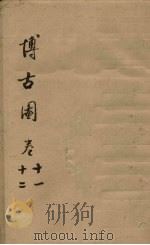 博古圖 卷
十一
十二
mtoou.info
mtoou.info